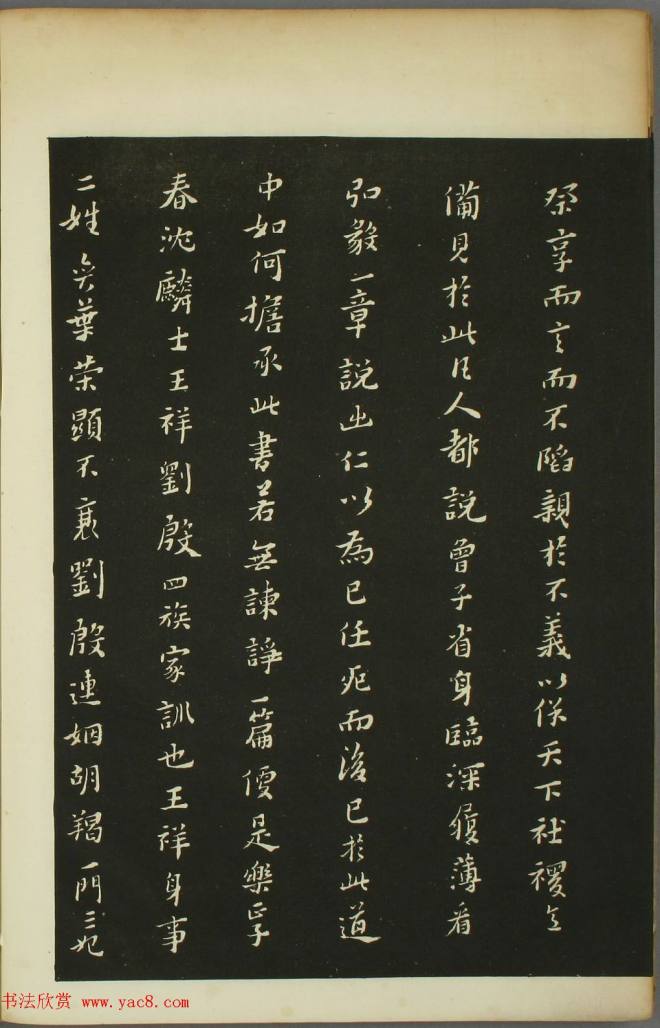 祭享而言而不陷親於不義以俟天下社稷之
備見於此凡人都説曾子省身臨深履薄看
弘毅一章説出仁以為己任死而後已於此道
中如何擔承此書若無諫諍一篇便是樂正子
春沈麟士王祥劉殷四族家訓也王祥身事
二姓奕葉榮顯不衰劉殷連姻胡羯一門三妃
书法欣赏 www.yac8.com